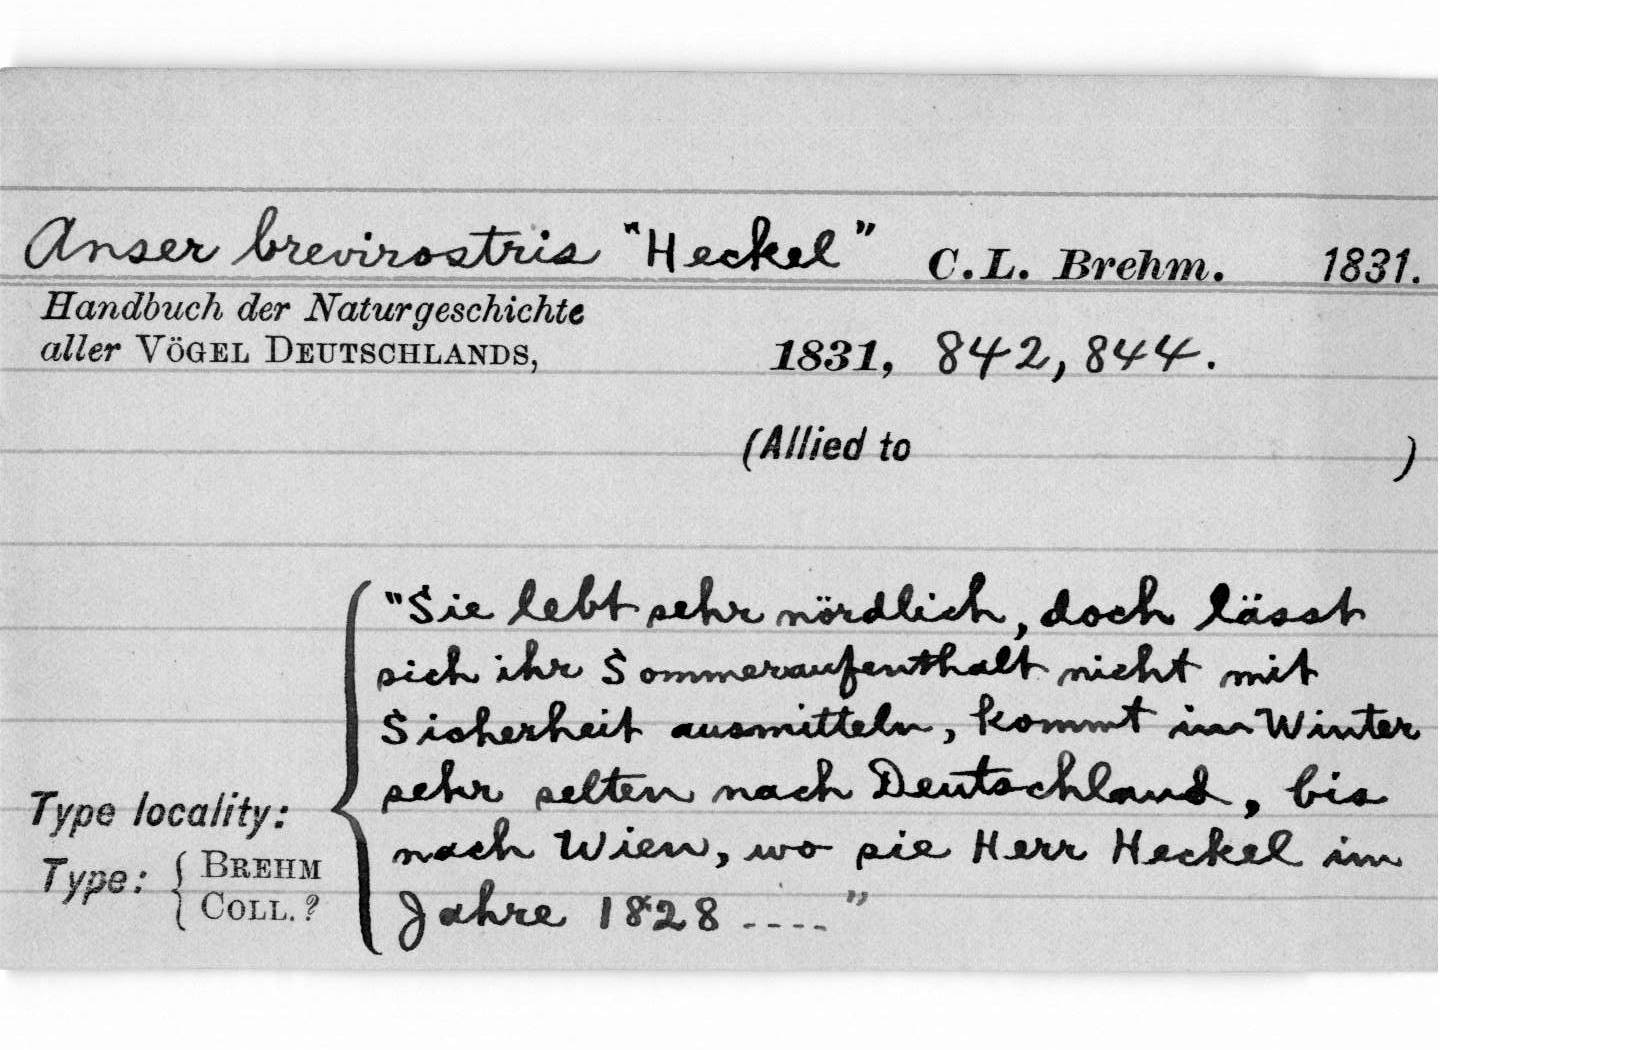 Anser brevirostris "Heckel" C.L. Brehm. 1831.
Handbuch der Naturgeschichte
aller VÖGEL DEUTSCHLANDS, 1831, 842, 844.
(Allied to )
"Sie lebt sehr nördlich, doch lässt
sich ihr Sommeraufenthalt nicht mit
Sicherheit ausmitteln, kommt im Winter
sehr selten nach Deutschland, bis
nach Wien, wo sie Herr Heckel im
Jahre 1828 ...."
Type locality:
Type: { BREHM
COLL. ?